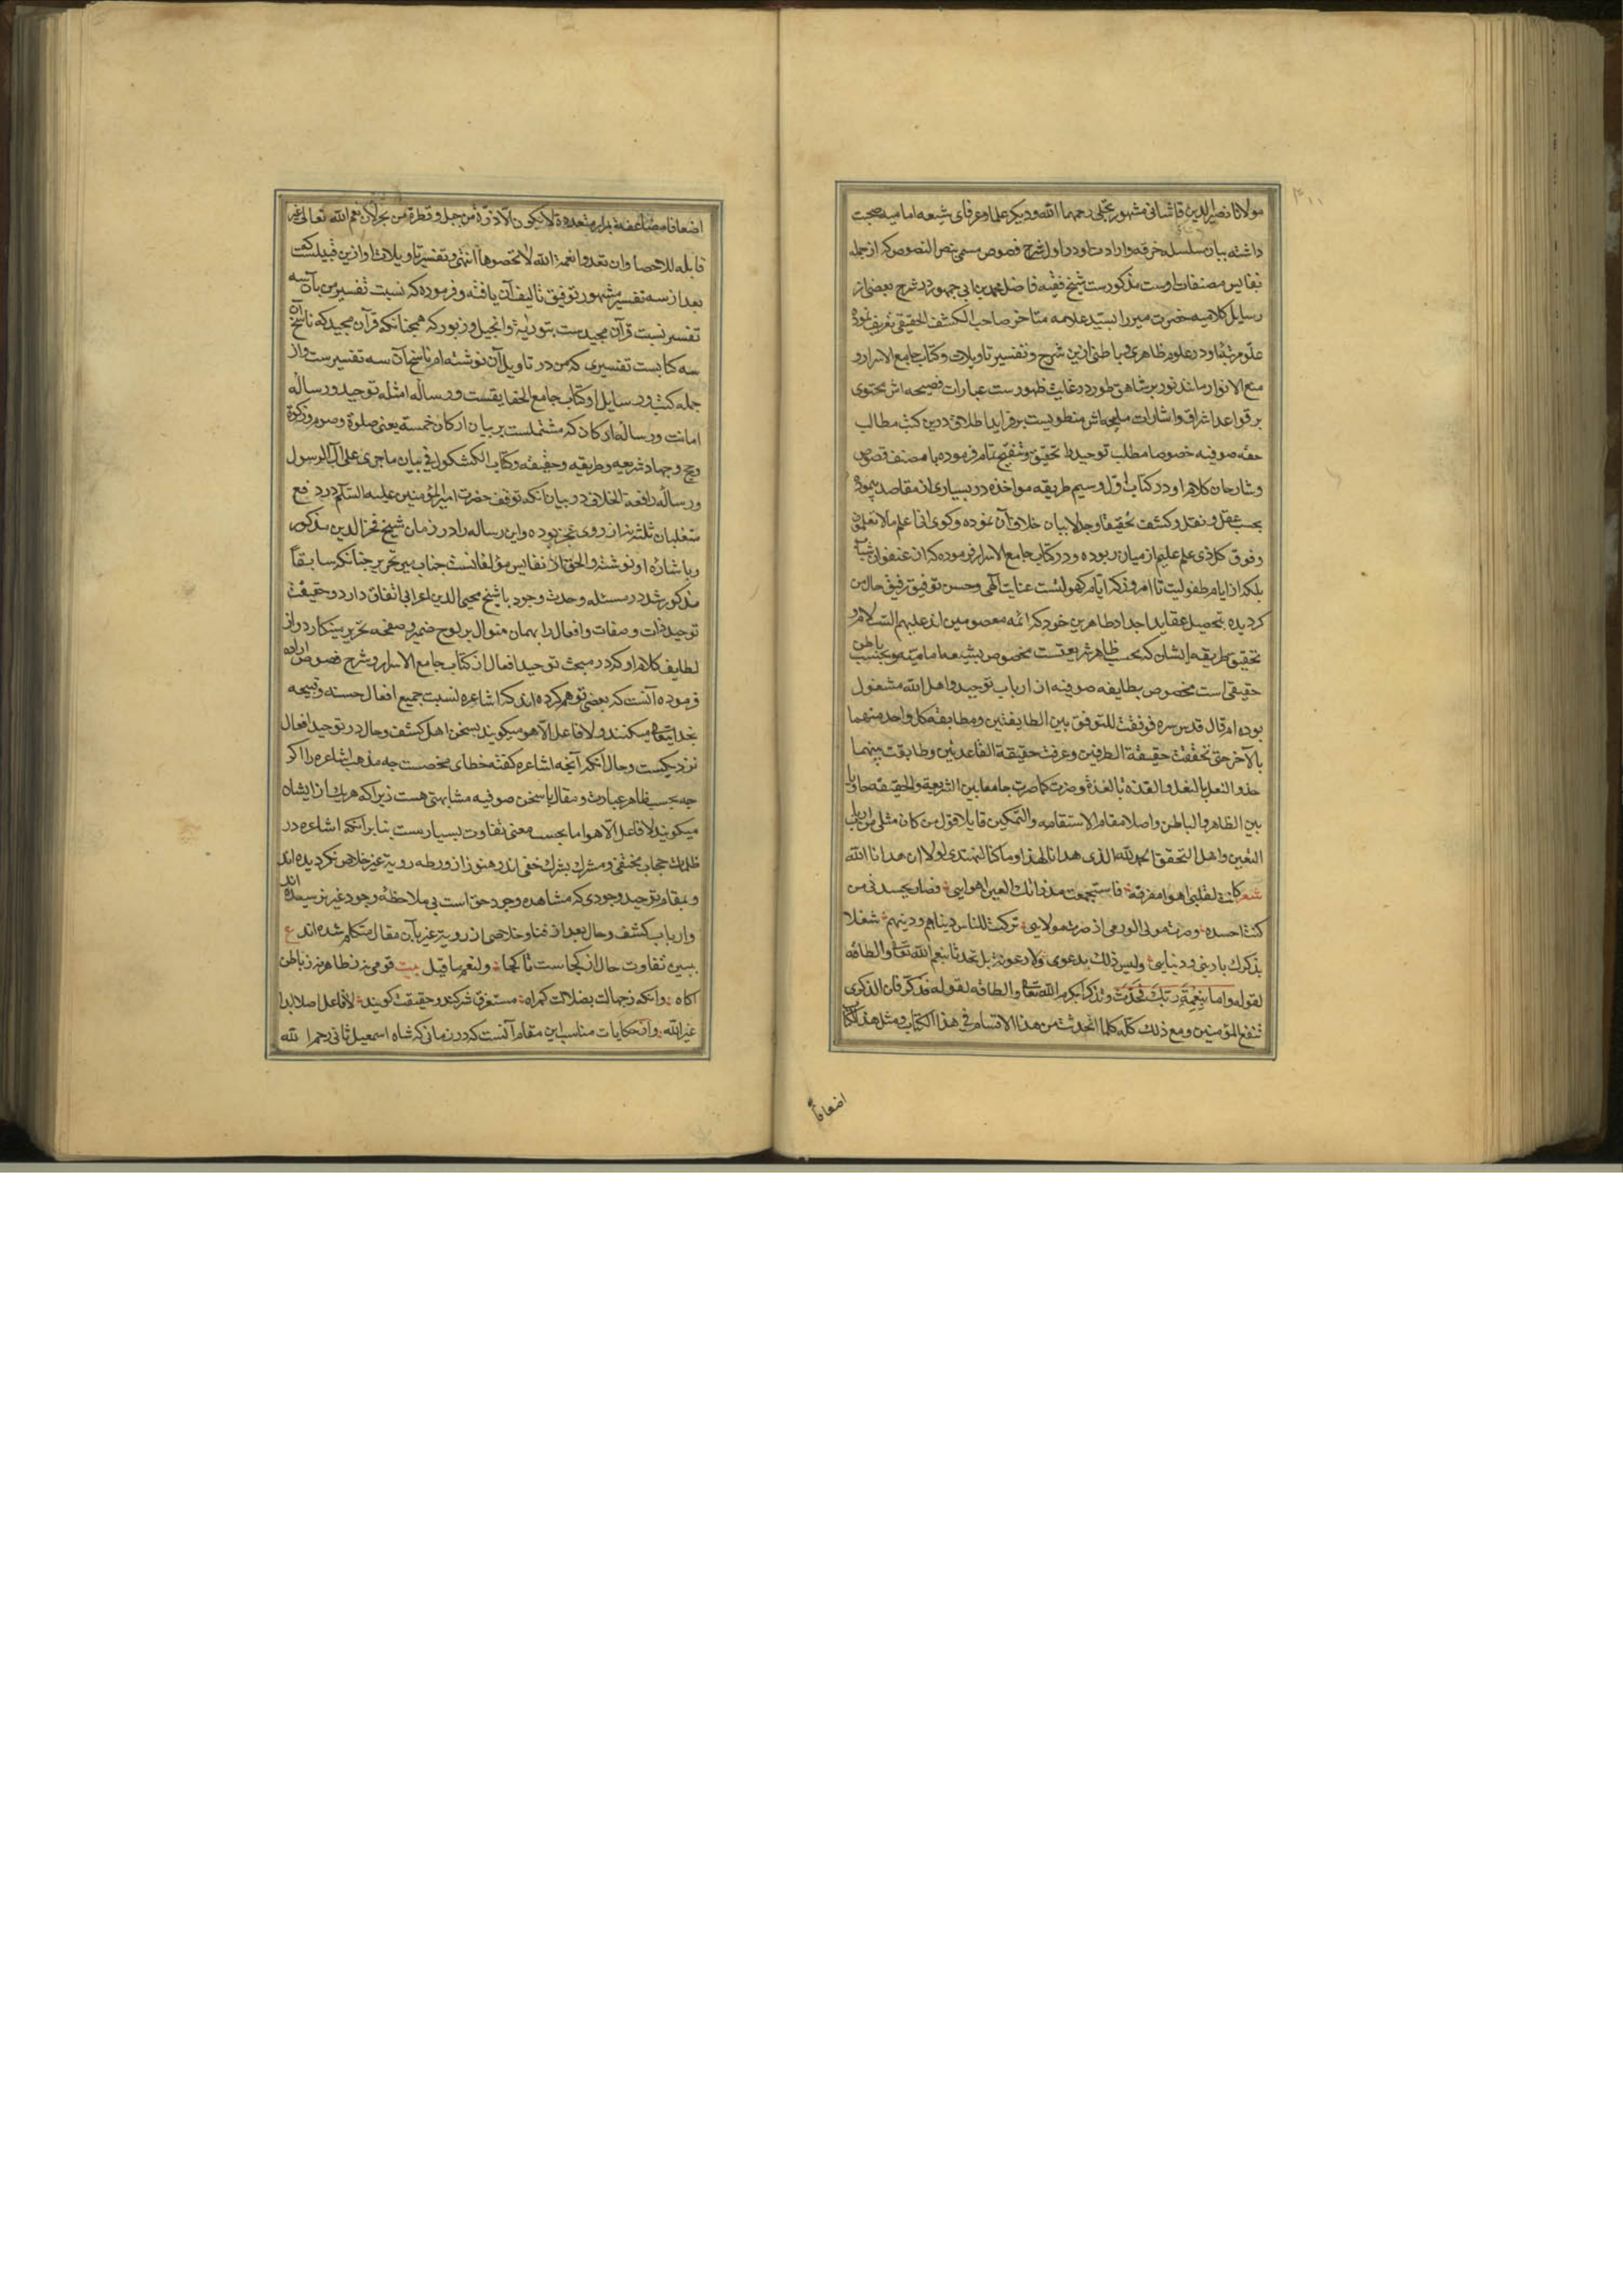 مولانا نصیر الدین قاشانی مشهور بحلی رحمهما الله ودیکر علما وعرفای شیعه امامیه صحبت
داشته بیان سلسله خرقه وارادت او در اول شرح فصوص مسمی بنص النصوص که از جمله
نفایس مصنفات اوست مذکورست شیخ فقیه فاضل محمد بن ابی جمهور در شرح بعضی از
رسایل کلامیه حضرت میر را بسید علامه متاخر صاحب الکشف الحقیقی تعریف نموده
علو مرتبه او در علوم ظاهری و باطنی ازین شرح وتفسیر تاویلات وکتاب جامع الاسرار و
منبع الانوار مانند نور بر شاهق طور در غایت ظهورست عبارات فصیحه اش محتوی
بر قواعد اشراق واشارات ملیحه اش منطویست بر فراید اطلاق درین کتب مطالب
حقه صوفیه خصوصا مطلب توحید را تحقیق وتنقیح تمام فرموده با مصنف فصوص
وشارحان کلام او در کتاب اول وسیم طریقه مواخذه در بسیاری از مقاصد پیموده
بحسب عقل ونقل وکشف تحقیقا وجدلا بیان خلاف آن نموده وکوی انی اعلم ما لا تعلمون
وفوق کل ذی علم علیم از میان ربوده ودر کتاب جامع الاسرار فرموده که از عنفوان شباب
بلکه از ایام طفولیت تا امروز که ایام کهولتست عنایت الهی وحسن توفیق رفیق حال من
کردیده بتحصیل عقاید اجداد طاهرین خود که ائمه معصومین اند علیهم السلام و
تحقیق طریقه ایشان که بحسب ظاهر شریعتست مخصوص بشیعه امامیه وبحسب باطن
حقیقی است مخصوص بطایفه صوفیه از ارباب توحید واهل الله مشغول
بوده ام قال قدس سره فوفقت للتوفیق بین الطایفتین ومطابقة کل واحد منهما
بالآخر حتی تحققت حقیقة الطرفین وعرفت حقیقة القاعدتین وطابقت بینهما
حذو النعل بالنعل والقذة بالقذة وصرت کما صرت جامعا بین الشریعة والحقیقه حاویا
بین الظاهر والباطن واصلا مقام الاستقامه والتمکین قایلا قول من کان مثلی من ارباب
الیقین واهل التحقیق الحمد لله الذی هدانا لهذا وما کنا لنهتدی لولا ان هدانا الله
شعر کانت لقلبی اهواء مفرقة فاستجمعت مذ راتک العین اهوایی فصار یحسدنی من
کنت احسده وصرت مولی الوری مذ صرت مولایی ترکت للناس دنیاهم ودینهم شغلا
بذکرک یا دینی ودنیایی ولیس ذلک بدعوی ولا رعونة بل تحدثا بنعم الله تعالی والطافه
لقوله واما بنعمة ربک فحدث وتذکرا بکرم الله تعالی والطافه لقوله فذکر فان الذکری
تنفع المؤمنین ومع ذلک کله کلما اتحدث من هذا الاقسام فی هذا الکتاب ومثل هذا الکتاب
اضعافا
اضعافا مضاعفة بمرار متعددة لا یکون الا ذرة من جبل وقطرة من بحر لان نعم الله تعالی غیر
قابله للاحصا وان تعدوا نعمة الله لا تحصوها انتهی وتفسیر تاویلات او ازین قبیلست که
بعد از سه تفسیر مشهور توفیق تالیف آن یافته وفرموده که نسبت تفسیر من بآن سه
تفسیر نسبت قرآن مجیدست بتوریة وانجیل وزبور که همچنانکه قرآن مجید که ناسخ آن
سه کتابست تفسیری که من در تاویل آن نوشته ام ناسخ آن سه تفسیرست واز
جمله کتب ورسایل او کتاب جامع الحقایقست ورساله امثله توحید ورساله
امانت ورساله ارکان که مشتملست بر بیان ارکان خمسه یعنی صلوة وصوم وزکوة
وحج وجهاد شریعه وطریقه وحقیقه وکتاب الکشکول فی بیان ما جری علی آل الرسول
ورساله رافعة الخلاف در بیان آنکه توقف حضرت امیر المؤمنین علیه السلم در دفع
متغلبان ثلثه نه از روی عجز بوده واین رساله را در زمان شیخ فخر الدین مذکور
وباشاره او نوشته والحق از نفایس مؤلفاتست جناب میر تحریر چنانکه سابقاً
مذکور شد در مسئله وحدت وجود با شیخ محیی الدین اعرابی اتفاق دارد وحقیقت
توحید ذات وصفات وافعال را بهمان منوال بر لوح ضمیر وصفحه تحریر مینکارد واز
لطایف کلام او که در مبحث توحید افعال از کتاب جامع الاسرار وشرح فصوص اراده
فرموده آنست که بعضی توهم کرده اند که اشاعره نسبت جمیع افعال حسنه وقبیحه
بخدایتعالی میکنند ولا فاعل الا هو میکویند بسخن اهل کشف وحال در توحید افعال
نزدیکست وحال آنکه آنچه اشاعره کفته خطای محضست چه مذهب اشاعره را اکر
چه بحسب ظاهر عبارت ومقال با سخن صوفیه مشابهتی هست زیرا که هر یک از ایشان
میکویند لا فاعل الا هو اما بحسب معنی تفاوت بسیارست بنابر آنکه اشاعره در
ظلمات حجاب مختفی ومشرک بشرک خفی اند وهنوز از ورطه رویة غیر خلاص نکردیده اند
وبمقام توحید وجودی که مشاهده وجود حق است بی ملاحظه وجود غیر نرسیده اند
وارباب کشف وحال بعد از فنا وخلاصی از رویت غیر بآن مقال متکلم شده اند ع
ببین تفاوت حال از کجاست تا کجا ولنعم ما قیل بیت قومی نه ز ظاهر نه ز باطن
آکاه وانکه ز جهالت بضلالت کمراه مستغرق شرکند وحقیقت کویند لا فاعل اصلا ابدا
غیر الله واز حکایات مناسب این مقام آنست که در زمانی که شاه اسمعیل ثانی رحمه الله